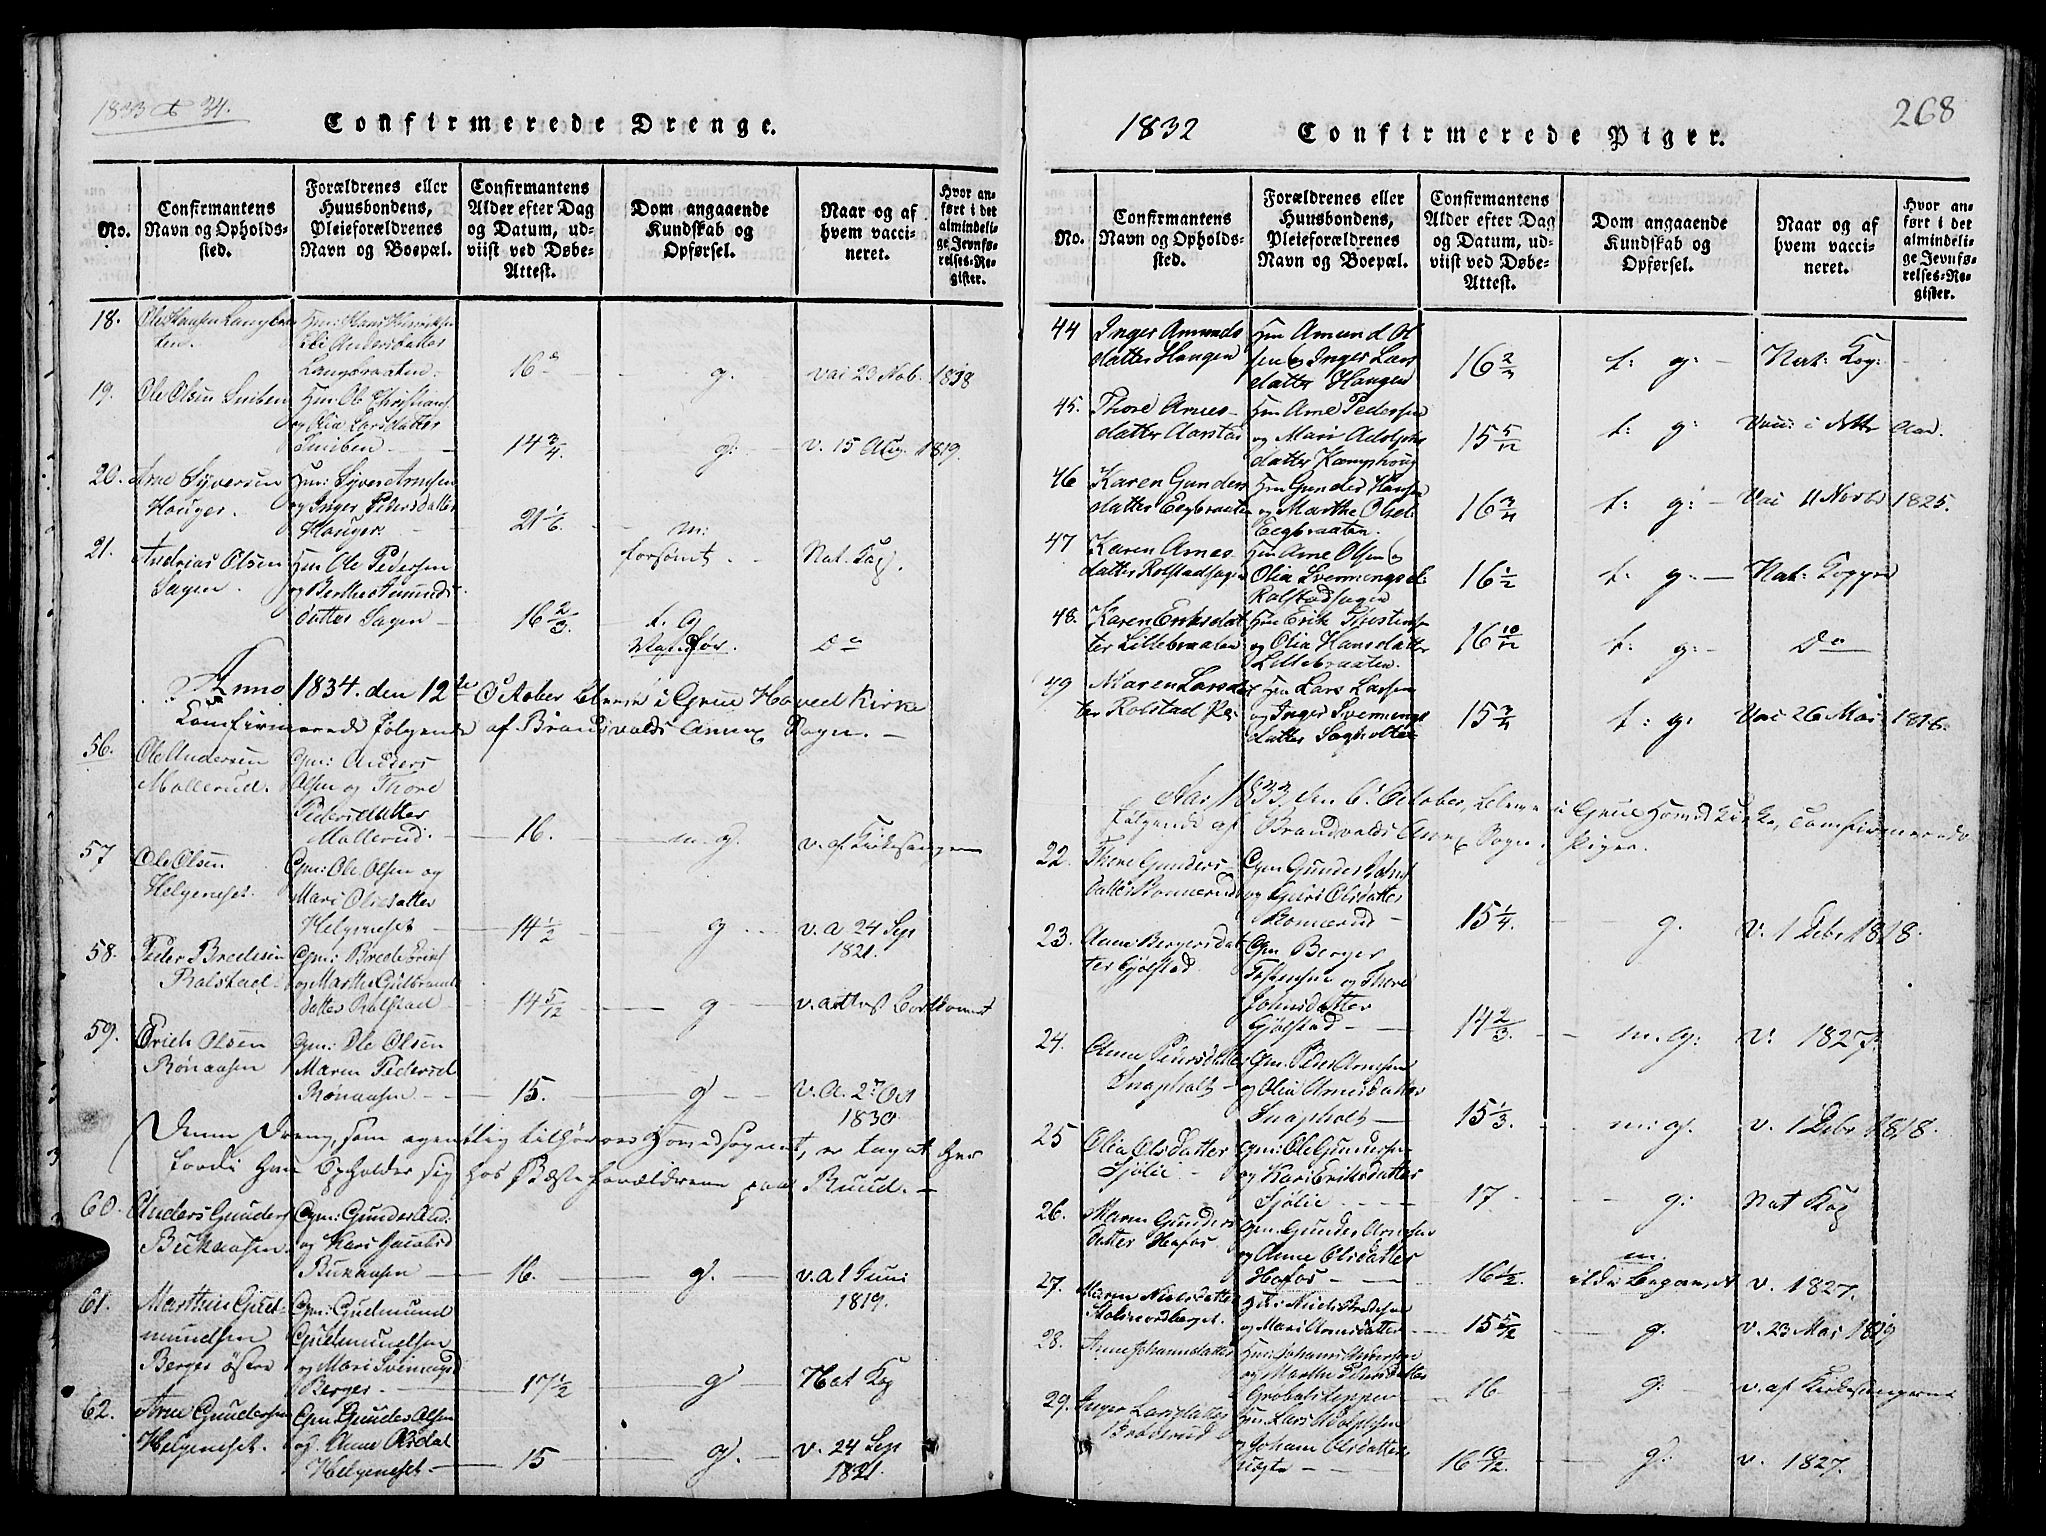 1833 & 34.
Confirmerede Drenge.
No.
Confirmantens
Navn og Opholds-
sted.
Forældrenes eller
Huusbondens,
Pleieforældrenes
Navn og Boepæl.
Confirmantens
Alder efter Dag
og Datum, ud-
viist ved Døbe-
Attest.
Dom angaaende
Kundskab og
Opførsel.
Naar og af
hvem vacci-
neret.
Hvor an-
ført i det
almindeli-
ge Jevnfø-
relses-Re-
gister.
18. Ole Hansen Langbraa-
ten.
Hans Henriksen
Andersdatter
Langbraaten.
16
g.
vac 23 Nob. 1818
19. Ole Olsen Sniben
Ole Christians
og Olia Larsdatter
Sniben
14 3/4
g:
v. 15 Aug. 1819.
20. Arne Syversen
Houger.
Syver Arnesen
og Inger Pedersdatter
Houger.
21 1/6
m:
21. Andreas Olsen
Sagen.
Ole Pedersen
og Berthe Amunds
datter Sagen
forsømt.
Nat. Kop.
16 2/3.
t. g
Do
Anno 1834. den 12te October blev i Grue Hoved Kirke
Confirmerede følgende af Brandvolds Annex Sogn. —
56. Ole Andersen
Mollerud.
Anders
Olsen og Thore
Pedersdatter
Mollerud.
16.
m. g.
v. af Kirkesangeren
57 Ole Olsen
Helgeneset.
Ole Olsen og
Mari Olsdatter
Helgeneset
14 1/2
g
v. a 24 Sep
1821.
58. Peder Bredesen
Rolstad
Brede
og Marthe Gulbrands
datter Rolstad
14 5/12
g
v. attest bortkommet
59. Erich Olsen
Rønaasen
Ole Olsen
Maren Pedersd
Rønaasen
15.
g
v. A. 27 Oct
1830
Denne Dreng, som egentlig tilhører Hovedsognet, er taget her
fordi han Opholder sig hos Bæsteforældrene paa Ruud. —
60. Anders Gunders
Bekaasen.
Gunder And:
og Kari Jacobsd
Bekaasen
16.
g.
v. a 1 Juni
1819.
61. Marthus Gud-
mundsen
Berger østre
Gudmund
Gudmundsen
og Mari Svenungsd
Berger.
17 1/2
g
Nat Kop
62. Arne Gundersen
Helgeneset.
Gunder Olsen
og Anne Olsdat
Helgeneset
15
g.
v. 24 Sep
1821.
1832
Confirmerede Piger.
268
No.
Confirmantens
Navn og Opholds-
sted.
Forældrenes eller
Huusbondens,
Pleieforældrenes
Navn og Boepæl.
Confirmantens
Alder efter Dag
og Datum, ud-
viist ved Døbe-
Attest.
Dom angaaende
Kundskab og
Opførsel.
Naar og af
hvem vacci-
neret.
Hvor an-
ført i det
almindeli-
ge Jevnfø-
relses-Re-
gister.
44 Inger Amunds
datter Haugen
Amund Ol
sen og Inger Lars
datter Haugen
16 2/3
t: g:
Nat: Kop:
45. Thore Arnes
datter Aarstad
Arne Pedersen
og Mari Adolphs
datter Kamphoug
15 5/12
t: g:
46 Karen Gunders
datter Eegbraaten
Gunder Hansen
og Marthe Olsd.
Eegbraaten.
16 3/4
t: g:
Vac 11 Novbr 1825.
47 Karen Arnes
datter Rolstadsagen
Arne Olsen og
Olia Svenningsd:
Rolstadsagen
16 1/2
t: g:
Nat: Kopper
48. Karen Eriksdat
ter Lillebraaten
Erik
og Olia Hansdatter
Lillebraaten.
16 10/12
t: g:
Do
49 Maren Larsdat
ter Rolstad
Lars Larsen
og Inger Svennings
datter Sagholten
15 3/4
t: g:
Vac 26 Mai 1816.
Aar 1833, den 6. October, bleve i Grue Hoved Kirke, Confirmerede
følgende af Brandvolds Annex Sogn, Piger.
22. Thore Gunders
datter Konnerud
Gunder
og Olsdatter
Konnerud
15 1/4
g.
v. 1 Debr 1818.
23. Anne Bergersdat
ter Gjølstad
Berger
og Thore
Johnsdatter
Gjølstad
14 2/3
m. g:
v. 1827.
24. Anne Pedersdatter
Snapholt
Peder Arnesen
og Olia Arnesdatter
Snapholt
15 1/3.
m: g.
v. 1 Debr 1818.
25 Olia Olsdatter
Sjølie
Ole Gundersen
og Kari Eriksdatter
Sjølie
17
g:
Nat Kop
26. Maren Gunders
datter Hofos
Gunder Arnesen
og Anne Olsdatter
Hofos
16 1/2.
m.
ilde begavet
v. 1827.
27. Maren Nielsdatter
Niels Bredesen
og Mari Arnesdatter
15 5/12
g.
v. 23 Mai 1819
28. Anne Johannesdatter
Johannes Andersen
og Marthe Pedersdatter
16
g:
v. af Kirkesangeren
29. Inger Larsdatter
Lars Adolphsen
og Johanne Olsdatter
16 10/12.
g:
v. 1827.